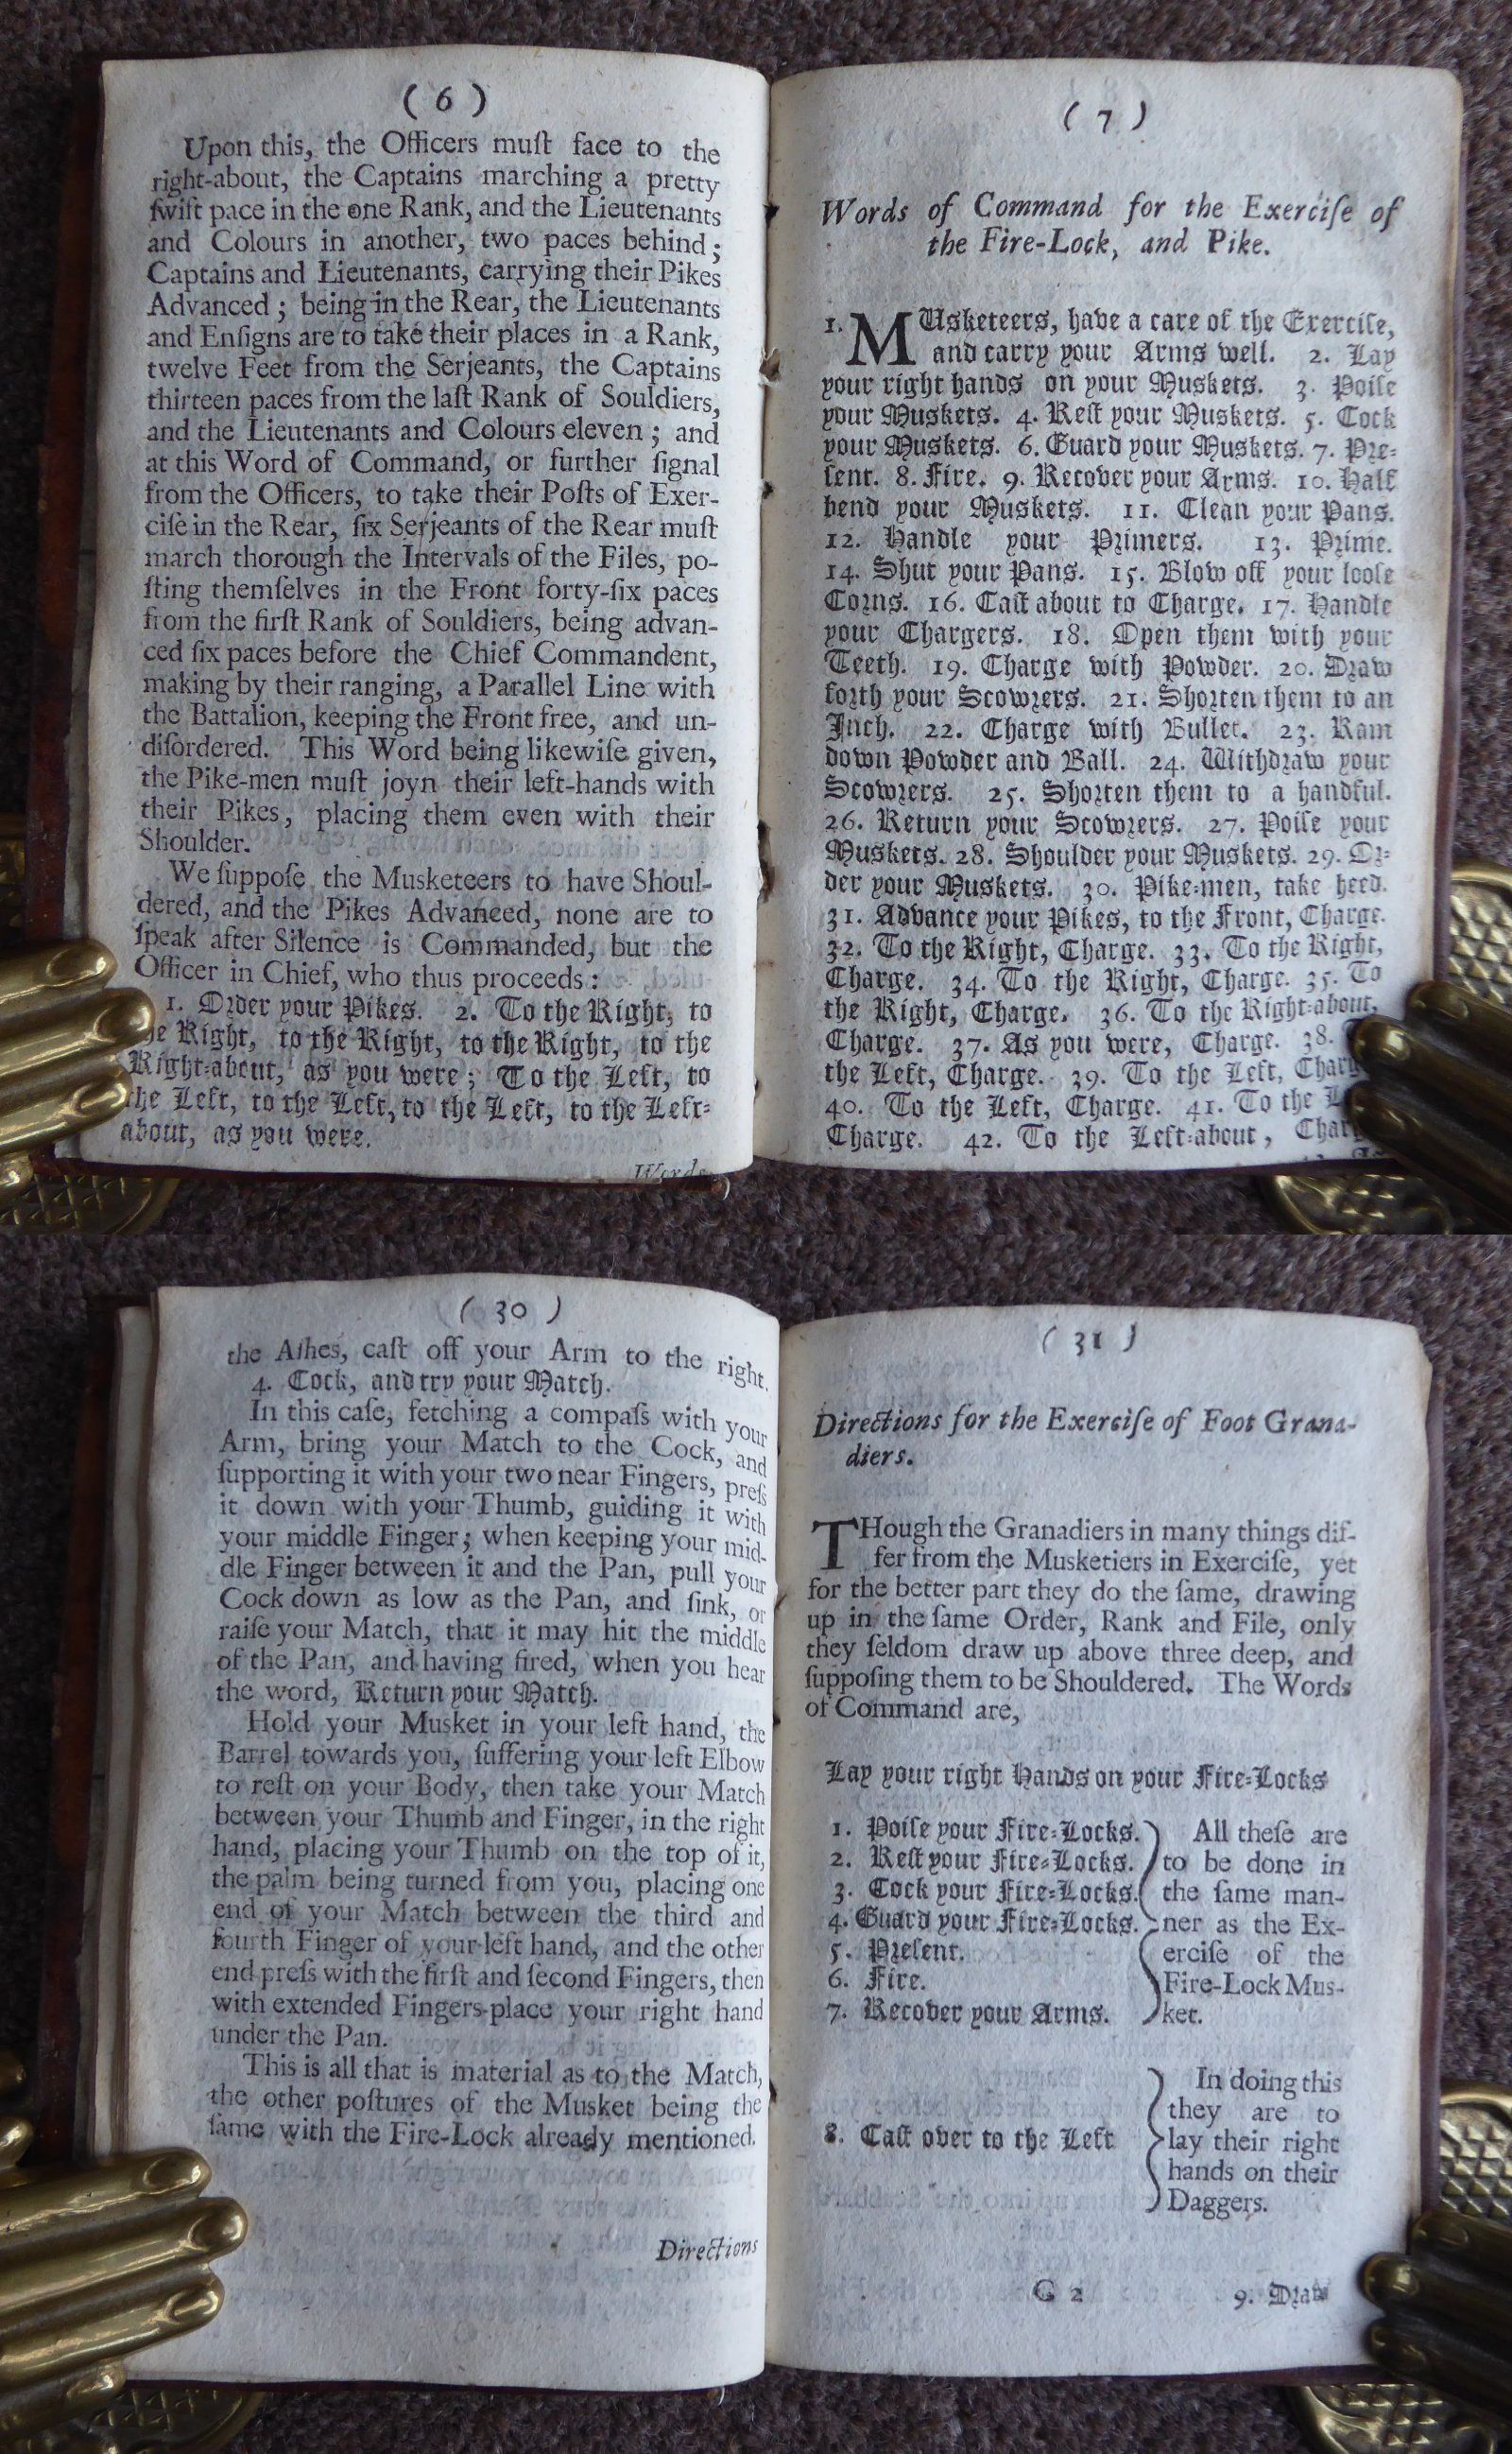 ( 6 )
Upon this, the Officers muſt face to the
right-about, the Captains marching a pretty
ſwift pace in the one Rank, and the Lieutenants
and Colours in another, two paces behind;
Captains and Lieutenants, carrying their Pikes
Advanced; being in the Rear, the Lieutenants
and Enſigns are to take their places in a Rank,
twelve Feet from the Serjeants, the Captains
thirteen paces from the laſt Rank of Souldiers,
and the Lieutenants and Colours eleven; and
at this Word of Command, or further ſignal
from the Officers, to take their Poſts of Exer-
ciſe in the Rear, ſix Serjeants of the Rear muſt
march thorough the Intervals of the Files, po-
ſting themſelves in the Front forty-ſix paces
from the firſt Rank of Souldiers, being advan-
ced ſix paces before the Chief Commandent,
making by their ranging, a Parallel Line with
the Battalion, keeping the Front free, and un-
diſordered. This Word being likewiſe given,
the Pike-men muſt joyn their left-hands with
their Pikes, placing them even with their
Shoulder.
We ſuppoſe the Musketeers to have Shoul-
dered, and the Pikes Advanced, none are to
ſpeak after Silence is Commanded, but the
Officer in Chief, who thus proceeds:
1. Order your Pikes. 2. To the Right, to
the Right, to the Right, to the Right, to the
Right-about, as you were; To the Left, to
the Left, to the Left, to the Left, to the Left-
about, as you were.
Words
( 7 )
Words of Command for the Exerciſe of
the Fire-Lock, and Pike.
1. MUsketeers, have a care of the Exerciſe,
and carry your Arms well. 2. Lay
your right hands on your Muskets. 3. Poiſe
your Muskets. 4. Reſt your Muskets. 5. Cock
your Muskets. 6. Guard your Muskets. 7. Pre-
ſent. 8. Fire. 9. Recover your Arms. 10. Half
bend your Muskets. 11. Clean your Pans.
12. Handle your Primers. 13. Prime.
14. Shut your Pans. 15. Blow off your looſe
Corns. 16. Caſt about to Charge. 17. Handle
your Chargers. 18. Open them with your
Teeth. 19. Charge with Powder. 20. Draw
forth your Scowrers. 21. Shorten them to an
Inch. 22. Charge with Bullet. 23. Ram
down Powder and Ball. 24. Withdraw your
Scowrers. 25. Shorten them to a handful.
26. Return your Scowrers. 27. Poiſe your
Muskets. 28. Shoulder your Muskets. 29. Or-
der your Muskets. 30. Pike-men, take heed.
31. Advance your Pikes, to the Front, Charge.
32. To the Right, Charge. 33. To the Right,
Charge. 34. To the Right, Charge. 35. To
the Right, Charge. 36. To the Right-about,
Charge. 37. As you were, Charge. 38.
the Left, Charge. 39. To the Left, Char
40. To the Left, Charge. 41. To the L
Charge. 42. To the Left-about, Char
( 30 )
the Aſhes, caſt off your Arm to the right.
4. Cock, and try your Match.
In this caſe, fetching a compaſs with your
Arm, bring your Match to the Cock, and
ſupporting it with your two near Fingers, preſs
it down with your Thumb, guiding it with
your middle Finger; when keeping your mid-
dle Finger between it and the Pan, pull your
Cock down as low as the Pan, and ſink, or
raiſe your Match, that it may hit the middle
of the Pan, and having fired, when you hear
the word, Return your Match.
Hold your Musket in your left hand, the
Barrel towards you, ſuffering your left Elbow
to reſt on your Body, then take your Match
between your Thumb and Finger, in the right
hand, placing your Thumb on the top of it,
the palm being turned from you, placing one
end of your Match between the third and
fourth Finger of your left hand, and the other
end preſs with the firſt and ſecond Fingers, then
with extended Fingers place your right hand
under the Pan.
This is all that is material as to the Match,
the other poſtures of the Musket being the
ſame with the Fire-Lock already mentioned.
Directions
( 31 )
Directions for the Exerciſe of Foot Grana-
diers.
THough the Granadiers in many things dif-
fer from the Musketiers in Exerciſe, yet
for the better part they do the ſame, drawing
up in the ſame Order, Rank and File, only
they ſeldom draw up above three deep, and
ſuppoſing them to be Shouldered. The Words
of Command are,
Lay your right Hands on your Fire-Locks
1. Poiſe your Fire-Locks.
2. Reſt your Fire-Locks.
3. Cock your Fire-Locks.
4. Guard your Fire-Locks.
5. Preſent.
6. Fire.
7. Recover your Arms.
All theſe are
to be done in
the ſame man-
ner as the Ex-
erciſe of the
Fire-Lock Mus-
ket.
8. Caſt over to the Left
In doing this
they are to
lay their right
hands on their
Daggers.
G 2
9. Draw